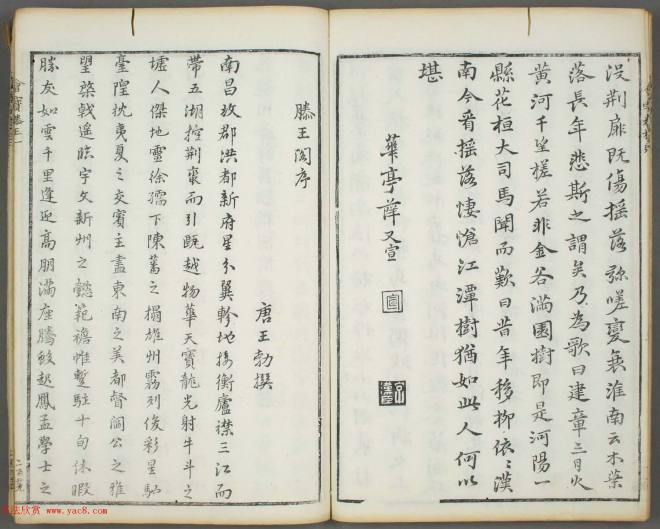 没荆扉既傷摇落弥嗟變衰淮南云木葉
落長年悲斯之謂矣乃為歌曰建章三月火
黄河千里槎若非金谷满園樹即是河陽一
縣花桓大司馬聞而歎曰昔年移柳依〻漢
南今看摇落悽愴江潭樹猶如此人何以
堪
華亭薛又宣
滕王閣序
唐王勃撰
南昌故郡洪都新府星分翼軫地接衡廬襟三江而
帶五湖控荆蠻而引甌越物華天寳龍光射牛斗之
墟人傑地靈徐孺下陳蕃之榻雄州霧列俊彩星馳
臺隍枕夷夏之交賓主盡東南之美都督閻公之雅
望棨戟遥臨宇文新州之懿範襜帷暫駐十旬休暇
勝友如雲千里逢迎髙朋满座騰蛟起鳳孟學士之
書法欣賞
www.yac8.com